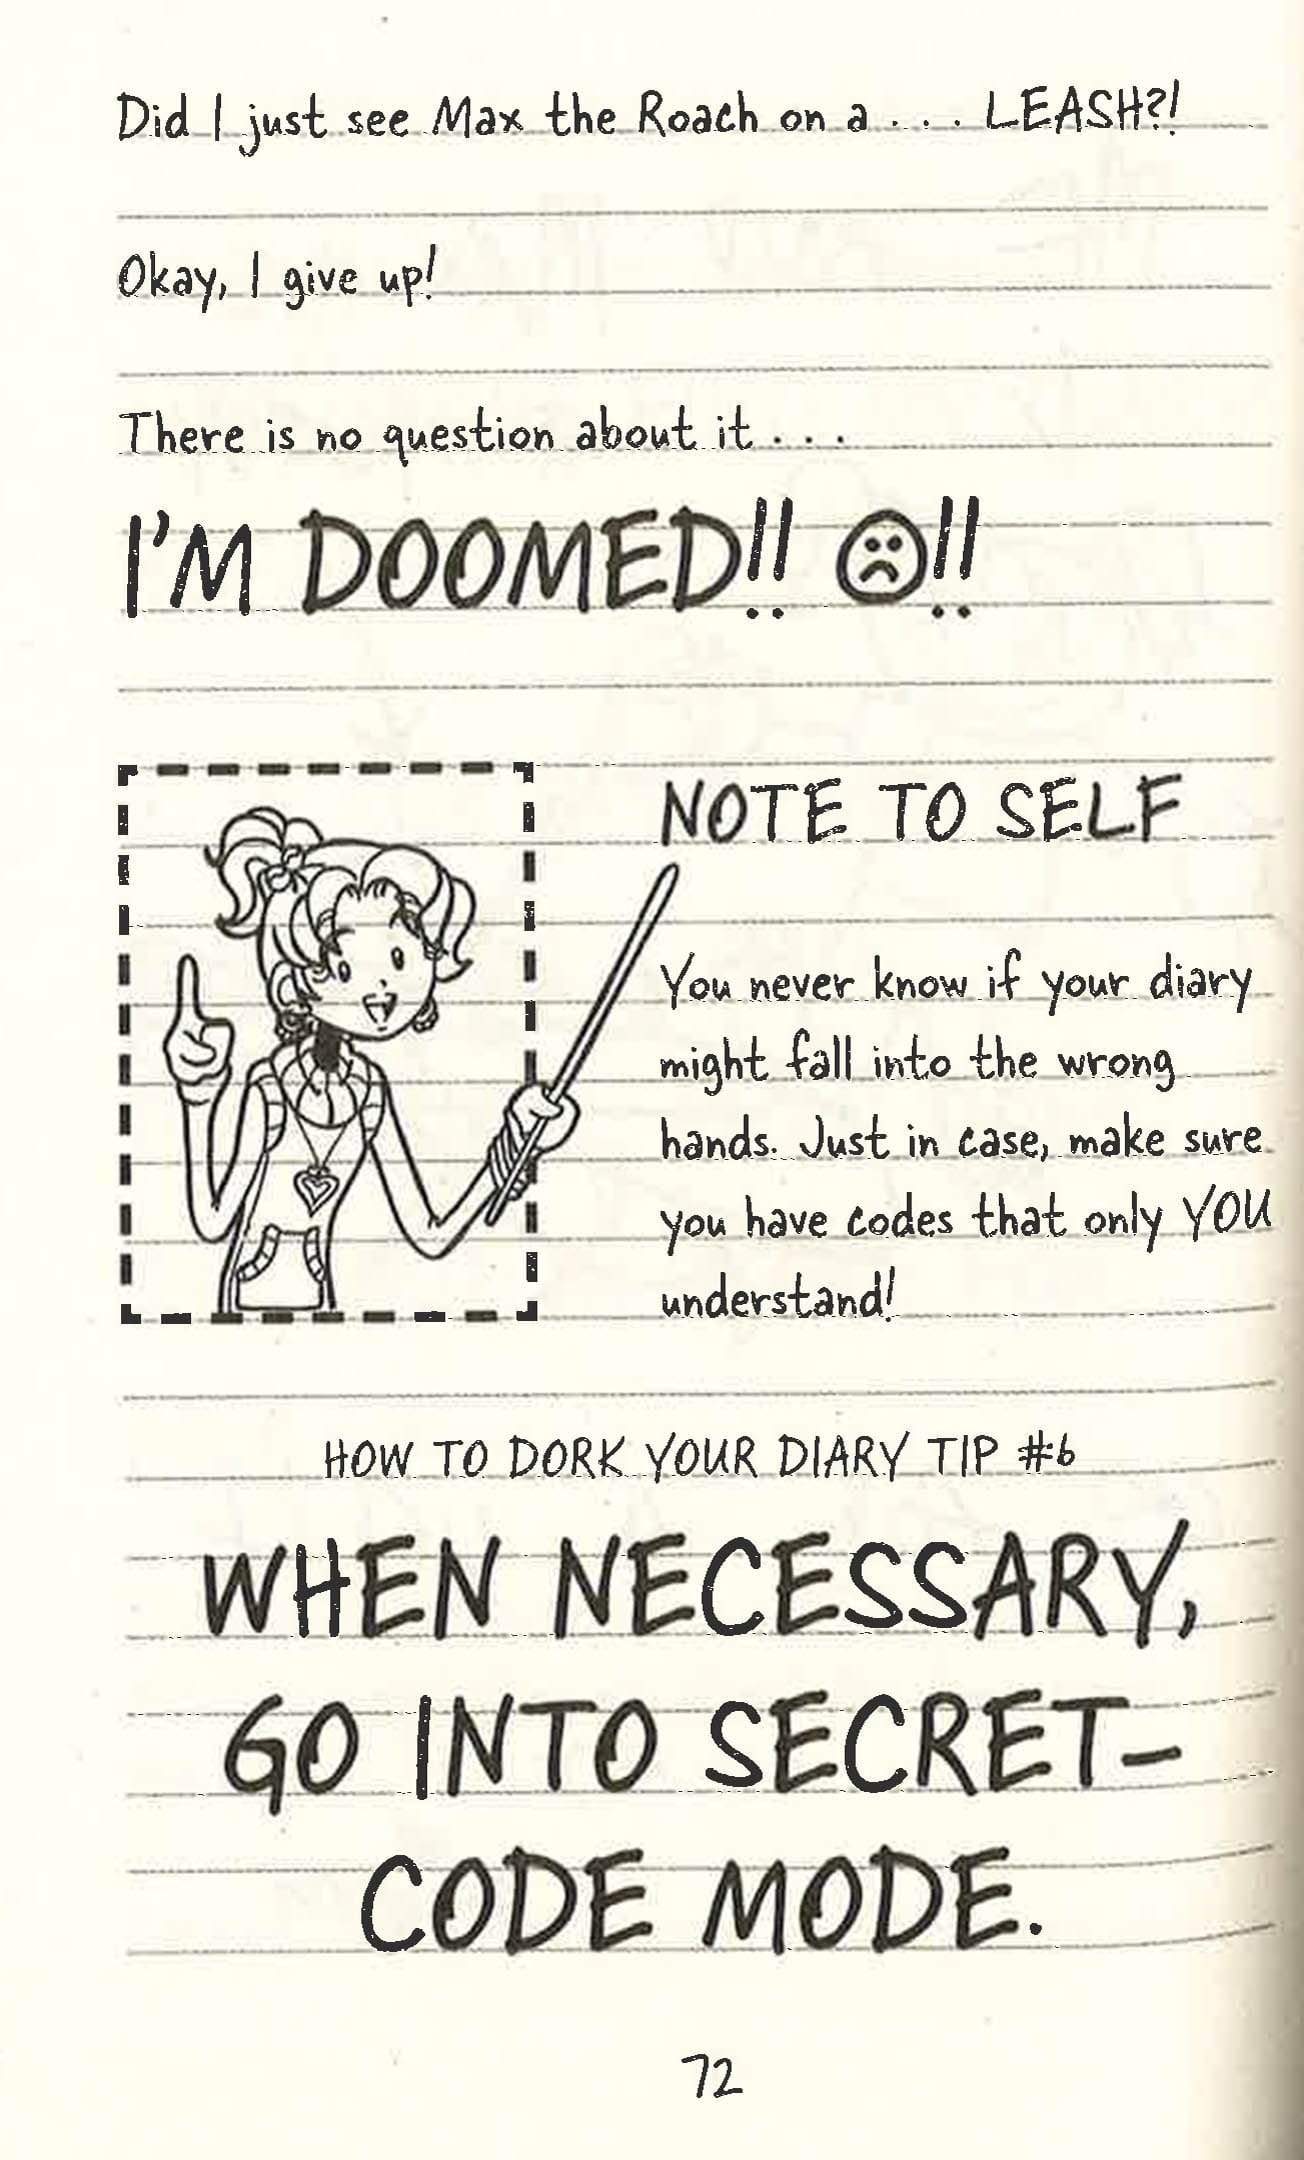 Did I just see Max the Roach on a . . . LEASH?!
Okay, I give up!
There is no question about it . . .
I'M DOOMED!! ☹!!
NOTE TO SELF
You never know if your diary
might fall into the wrong
hands. Just in case, make sure
you have codes that only YOU
understand!
HOW TO DORK YOUR DIARY TIP #6
WHEN NECESSARY,
GO INTO SECRET-
CODE MODE.
72